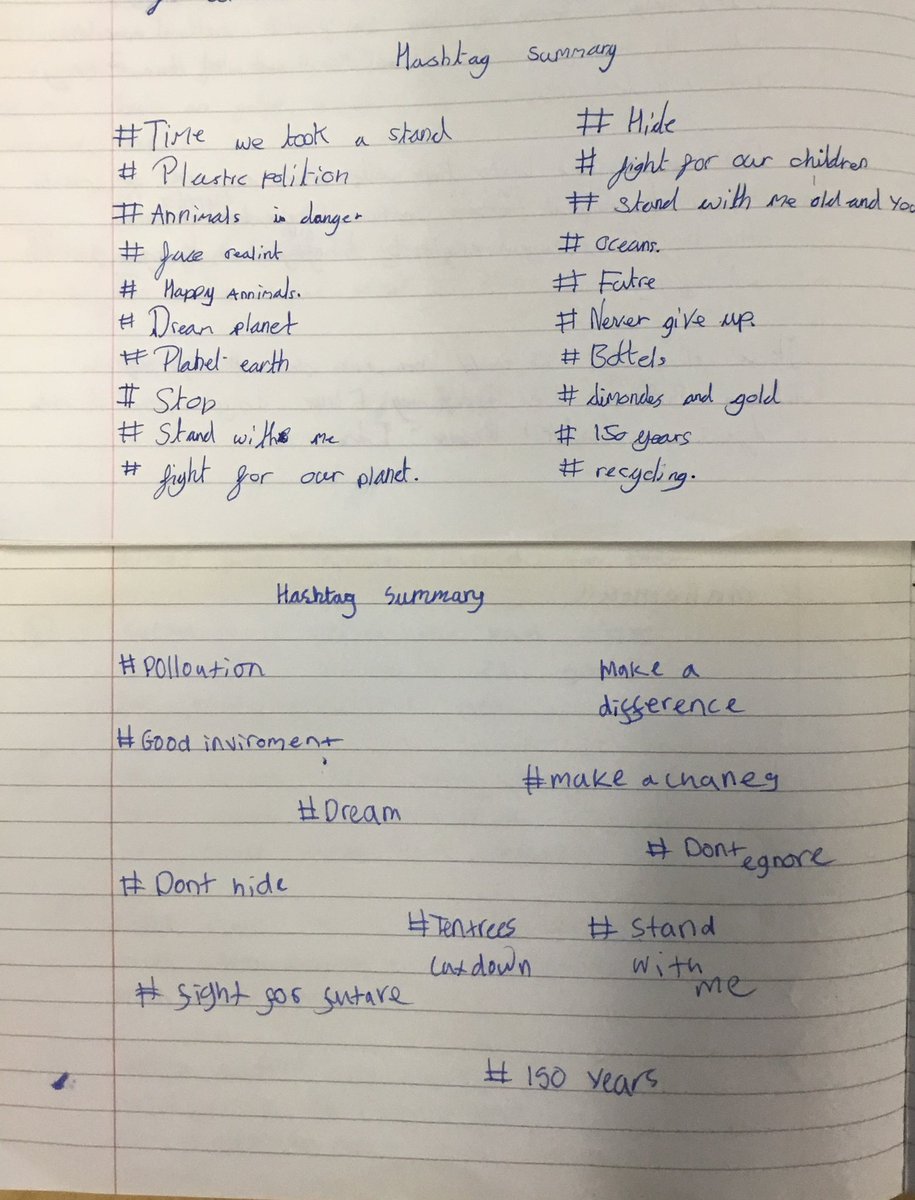 Hashtag Summary
#Time we took a stand
# Plastic polition
# Annimals is danger
# face realint
# Happy Annimals.
# Dream planet
# Planet earth
# Stop
# Stand with me
# fight for our planet.
# Hide
# fight for our children
# Stand with me old and you
# Oceans.
# Futre
# Never give up.
# Bottels
# dimondes and gold
# 150 years
# recycling.
Hashtag Summary
#Polloution
Make a
difference
#Good inviroment
#make a chaneg
#Dream
# Dont egnore
# Dont hide
#Ten trees
cut down
# Stand
with
me
# fight for futare
# 150 years